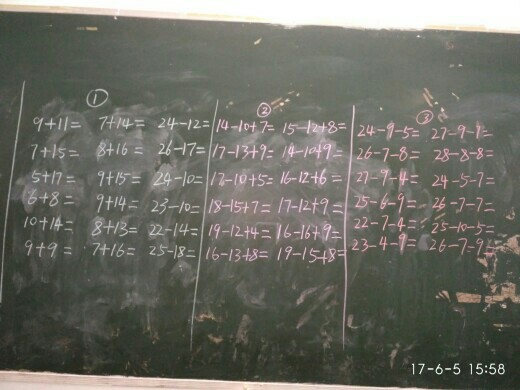 ①
9+11= 7+14= 24-12=
7+15= 8+16= 26-17=
5+17= 9+15= 24-10=
6+8= 9+14= 23-10=
10+14= 8+13= 22-14=
9+9= 7+16= 25-18=
②
14-10+7= 15-12+8=
17-13+9= 14-10+9=
17-10+5= 16-12+6=
18-15+7= 17-12+9=
19-12+4= 16-16+9=
16-13+8= 19-15+8=
③
24-9-5= 27-9-1=
26-7-8= 28-8-8=
27-9-4= 24-5-7=
25-6-9= 26-7-7=
22-7-4= 25-10-5=
23-4-9= 26-7-9=
17-6-5 15:58